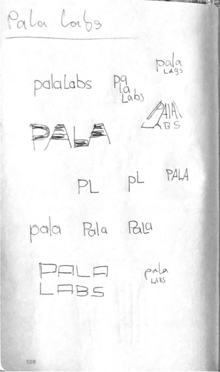 Pala Labs
pala
LABS
palaLabs
pa
la
Labs
PALA
LABS
PALA
PL
pL
PALA
pala
Pala
PaLa
PALA
LABS
pala
LABS